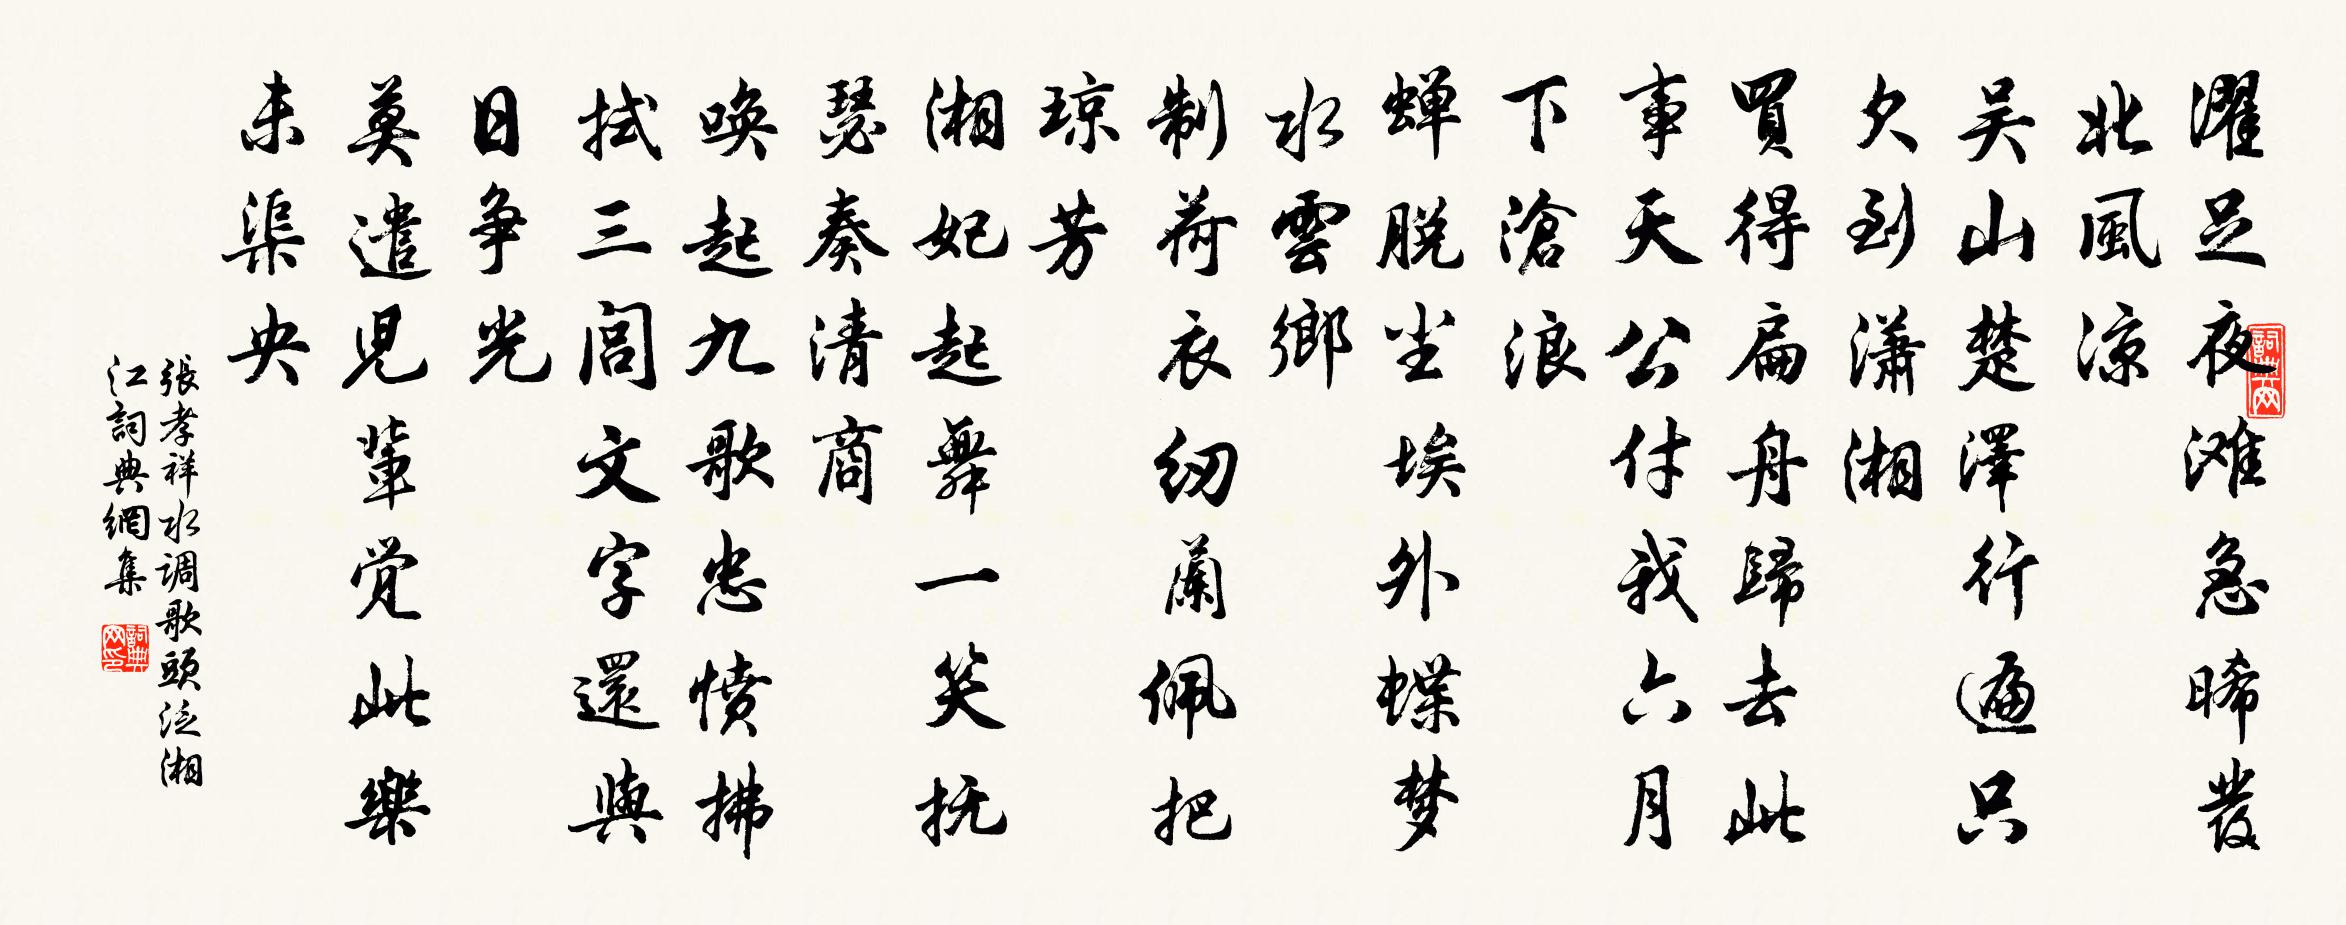 濯足夜滩急晞發
北風涼
吴山楚澤行遍只
欠到瀟湘
買得扁舟歸去此
事天公付我六月
下滄浪
蝉脱尘埃外蝶梦
水雲鄉
制荷衣纫蘭佩把
琼芳
湘妃起舞一笑抚
瑟奏清商
唤起九歌忠愤拂
拭三閭文字還與
日争光
莫遣兒輩觉此樂
未渠央
張孝祥水调歌頭泛湘
江詞典網集
詞典网
詞典网印